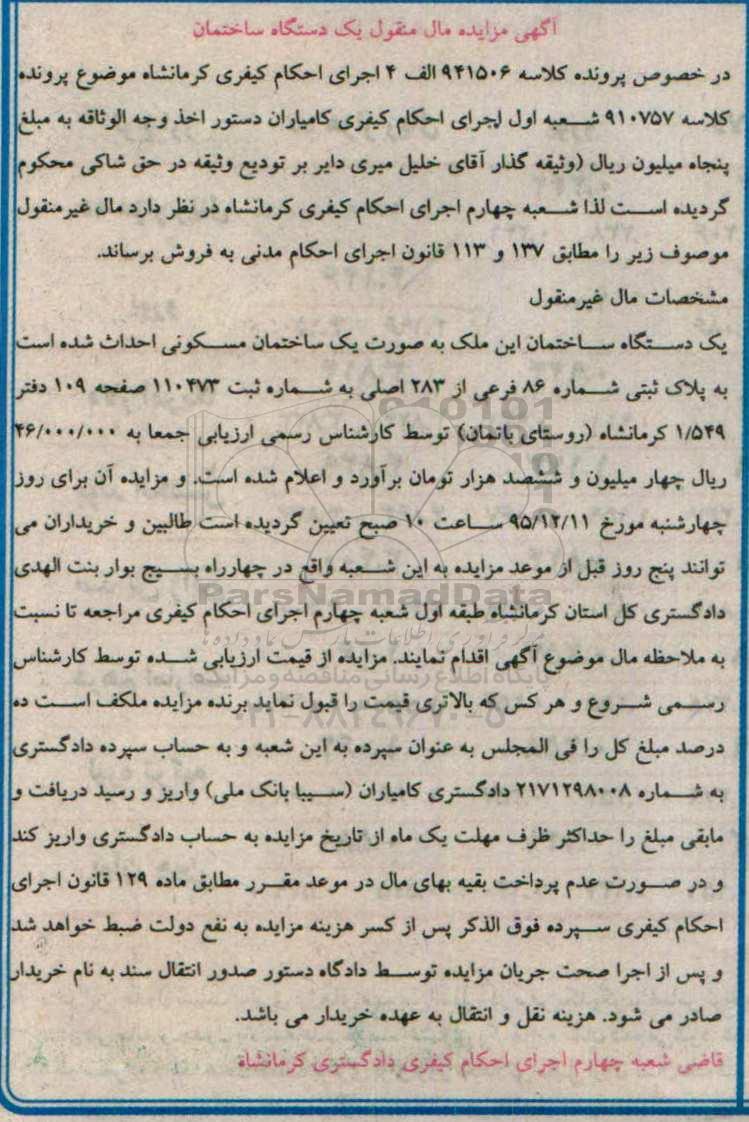 آگهی مزایده مال منقول یک دستگاه ساختمان
در خصوص پرونده کلاسه ۹۴۱۵۰۶ الف ۴ اجرای احکام کیفری کرمانشاه موضوع پرونده
کلاسه ۹۱۰۷۵۷ شعبه اول اجرای احکام کیفری کامیاران دستور اخذ وجه الوثاقه به مبلغ
پنجاه میلیون ریال (وثیقه گذار آقای خلیل میری دایر بر تودیع وثیقه در حق شاکی محکوم
گردیده است لذا شعبه چهارم اجرای احکام کیفری کرمانشاه در نظر دارد مال غیرمنقول
موصوف زیر را مطابق ۱۳۷ و ۱۱۳ قانون اجرای احکام مدنی به فروش برساند.
مشخصات مال غیرمنقول
یک دستگاه ساختمان این ملک به صورت یک ساختمان مسکونی احداث شده است
به پلاک ثبتی شماره ۸۶ فرعی از ۲۸۳ اصلی به شماره ثبت ۱۱۰۴۷۳ صفحه ۱۰۹ دفتر
۱/۵۴۹ کرمانشاه (روستای باتمان) توسط کارشناس رسمی ارزیابی جمعا به ۴۶/۰۰۰/۰۰۰
ریال چهار میلیون و ششصد هزار تومان برآورد و اعلام شده است. و مزایده آن برای روز
چهارشنبه مورخ ۹۵/۱۲/۱۱ ساعت ۱۰ صبح تعیین گردیده است طالبین و خریداران می
توانند پنج روز قبل از موعد مزایده به این شعبه واقع در چهارراه بسیج بوار بنت الهدی
دادگستری کل استان کرمانشاه طبقه اول شعبه چهارم اجرای احکام کیفری مراجعه تا نسبت
به ملاحظه مال موضوع آگهی اقدام نمایند. مزایده از قیمت ارزیابی شده توسط کارشناس
رسمی شروع و هر کس که بالاتری قیمت را قبول نماید برنده مزایده ملکف است ده
درصد مبلغ کل را فی المجلس به عنوان سپرده به این شعبه و به حساب سپرده دادگستری
به شماره ۲۱۷۱۲۹۸۰۰۸ دادگستری کامیاران (سیبا بانک ملی) واریز و رسید دریافت و
مابقی مبلغ را حداکثر ظرف مهلت یک ماه از تاریخ مزایده به حساب دادگستری واریز کند
و در صورت عدم پرداخت بقیه بهای مال در موعد مقرر مطابق ماده ۱۲۹ قانون اجرای
احکام کیفری سپرده فوق الذکر پس از کسر هزینه مزایده به نفع دولت ضبط خواهد شد
و پس از اجرا صحت جریان مزایده توسط دادگاه دستور صدور انتقال سند به نام خریدار
صادر می شود. هزینه نقل و انتقال به عهده خریدار می باشد.
قاضی شعبه چهارم اجرای احکام کیفری دادگستری کرمانشاه
ParsNamadData
مرکز فرآوری اطلاعات پارس نماد داده ها
پایگاه اطلاع رسانی مناقصه و مزایده
۰۲۱-۸۸۳۴۹۶۷۰-۵